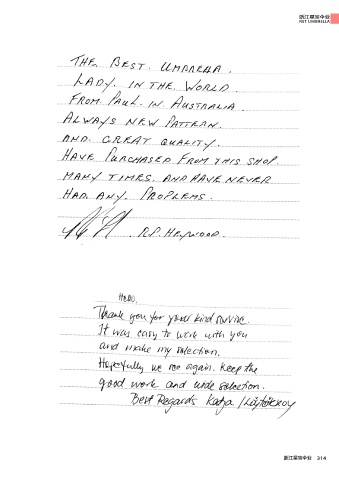 浙江星宝伞业
RST UMBRELLA
THE BEST. UMBRELLA.
LADY. IN THE WORLD.
FROM. PAUL. IN AUSTRALIA
ALWAYS NEW PATTERN.
AND. GREAT QUALITY.
HAVE PURCHASED FROM THIS SHOP.
MANY TIMES. AND HAVE NEVER
HAD. ANY. PROPLEMS.
R.P. HEYWOOD.
Hello,
Thank you for your kind survise.
It was easy to work with you
and make my selection.
Hopefully we see again. Keep the
good work and wide selection.
Best Regards Katja
浙江星宝伞业 314